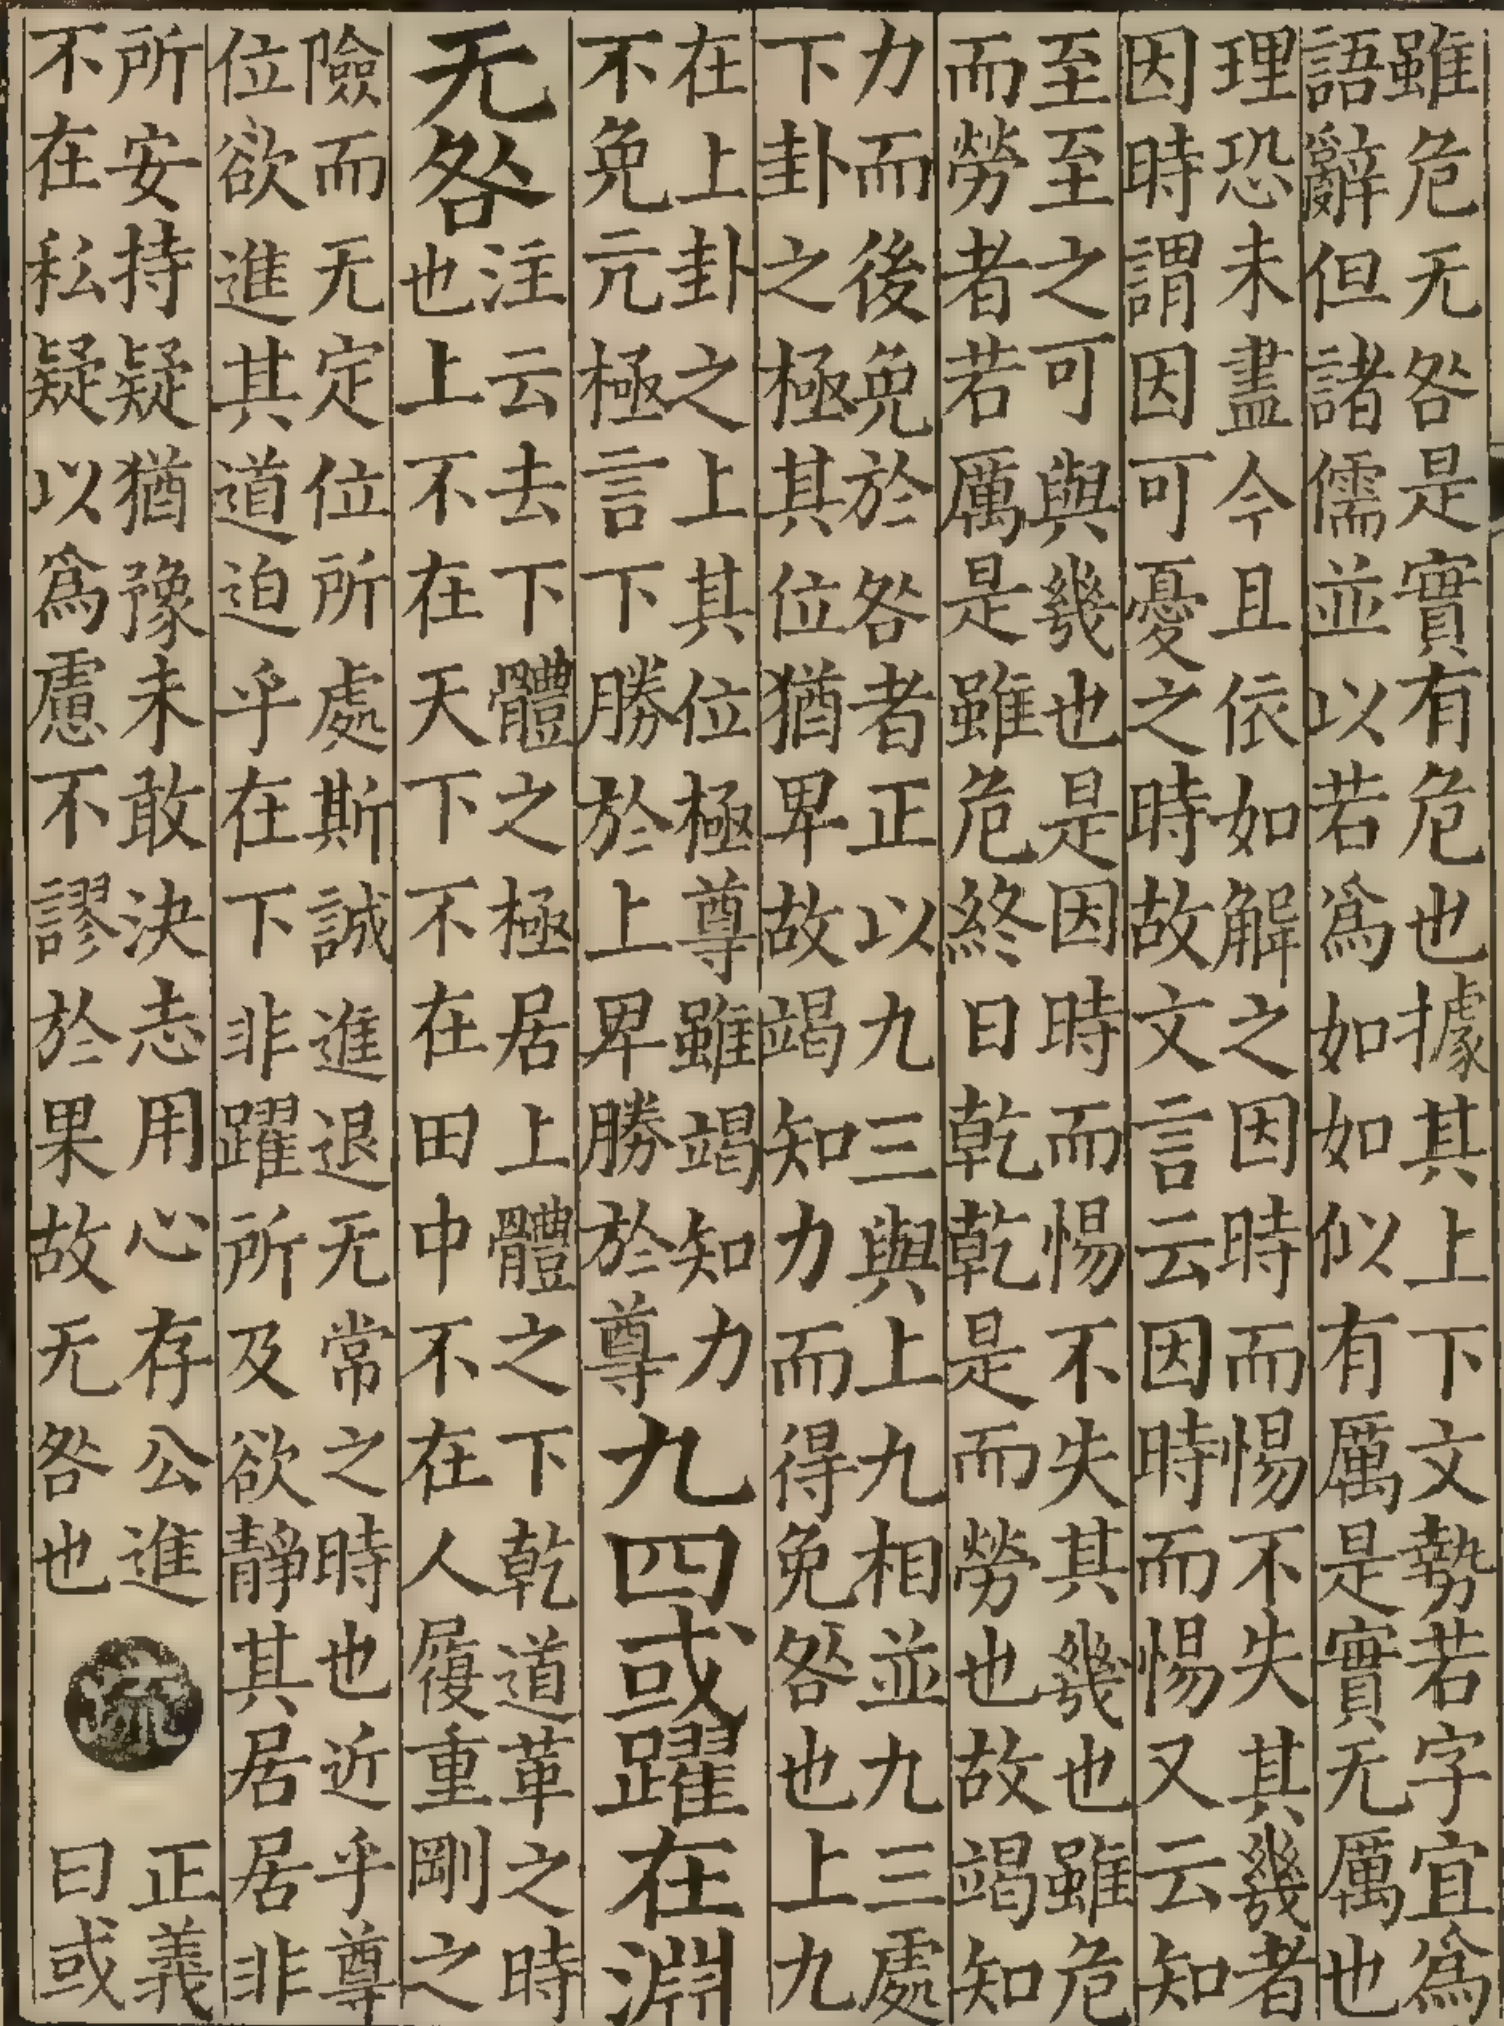 雖危无咎是實有危也據其上下文勢若字宜爲
語辭但諸儒並以若爲如如似有厲是實无厲也
理恐未盡今且依如解之因時而惕不失其幾者
因時謂因可憂之時故文言云因時而惕又云知
至至之可與幾也是因時而惕不失其幾也雖危
而勞者若厲是雖危終日乾乾是而勞也故竭知
力而後免於咎者正以九三與上九相並九三處
下卦之極其位猶卑故竭知力而得免咎也上九
在上卦之上其位極尊雖竭知力
不免亢極言下勝於上卑勝於尊
九四或躍在淵
无咎
注云去下體之極居上體之下乾道革之時
也上不在天下不在田中不在人履重剛之
險而无定位所處斯誠進退无常之時也近乎尊
位欲進其道迫乎在下非躍所及欲靜其居居非
所安持疑猶豫未敢決志用心存公進
不在私疑以爲慮不謬於果故无咎也
疏
正義
曰或